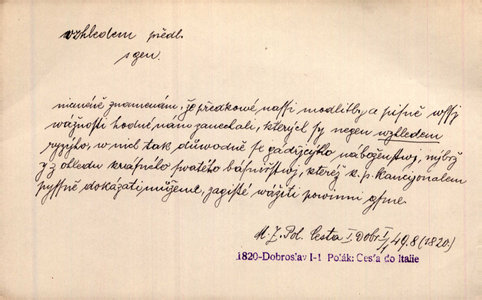 vzhledem předl.
s gen.
znamenám, že předkové nassi modlitby a pisně wssj
wážnosti hodné nám zanechali, kterých sy negen vzhledem
w nich tak důwodně se nábožensstwj, nýbrž
y z ohledu krásného swatého básnjřstwj, kteréž s. p. kancyonalem
pyssně dokázati můžeme, zagisté wážiti powinni gsme.
M. Z. Pol. Cesta I, Dobr. I/1 49.8 (1820)
1820-Dobroslav I-1 Polák: Cesta do Italie